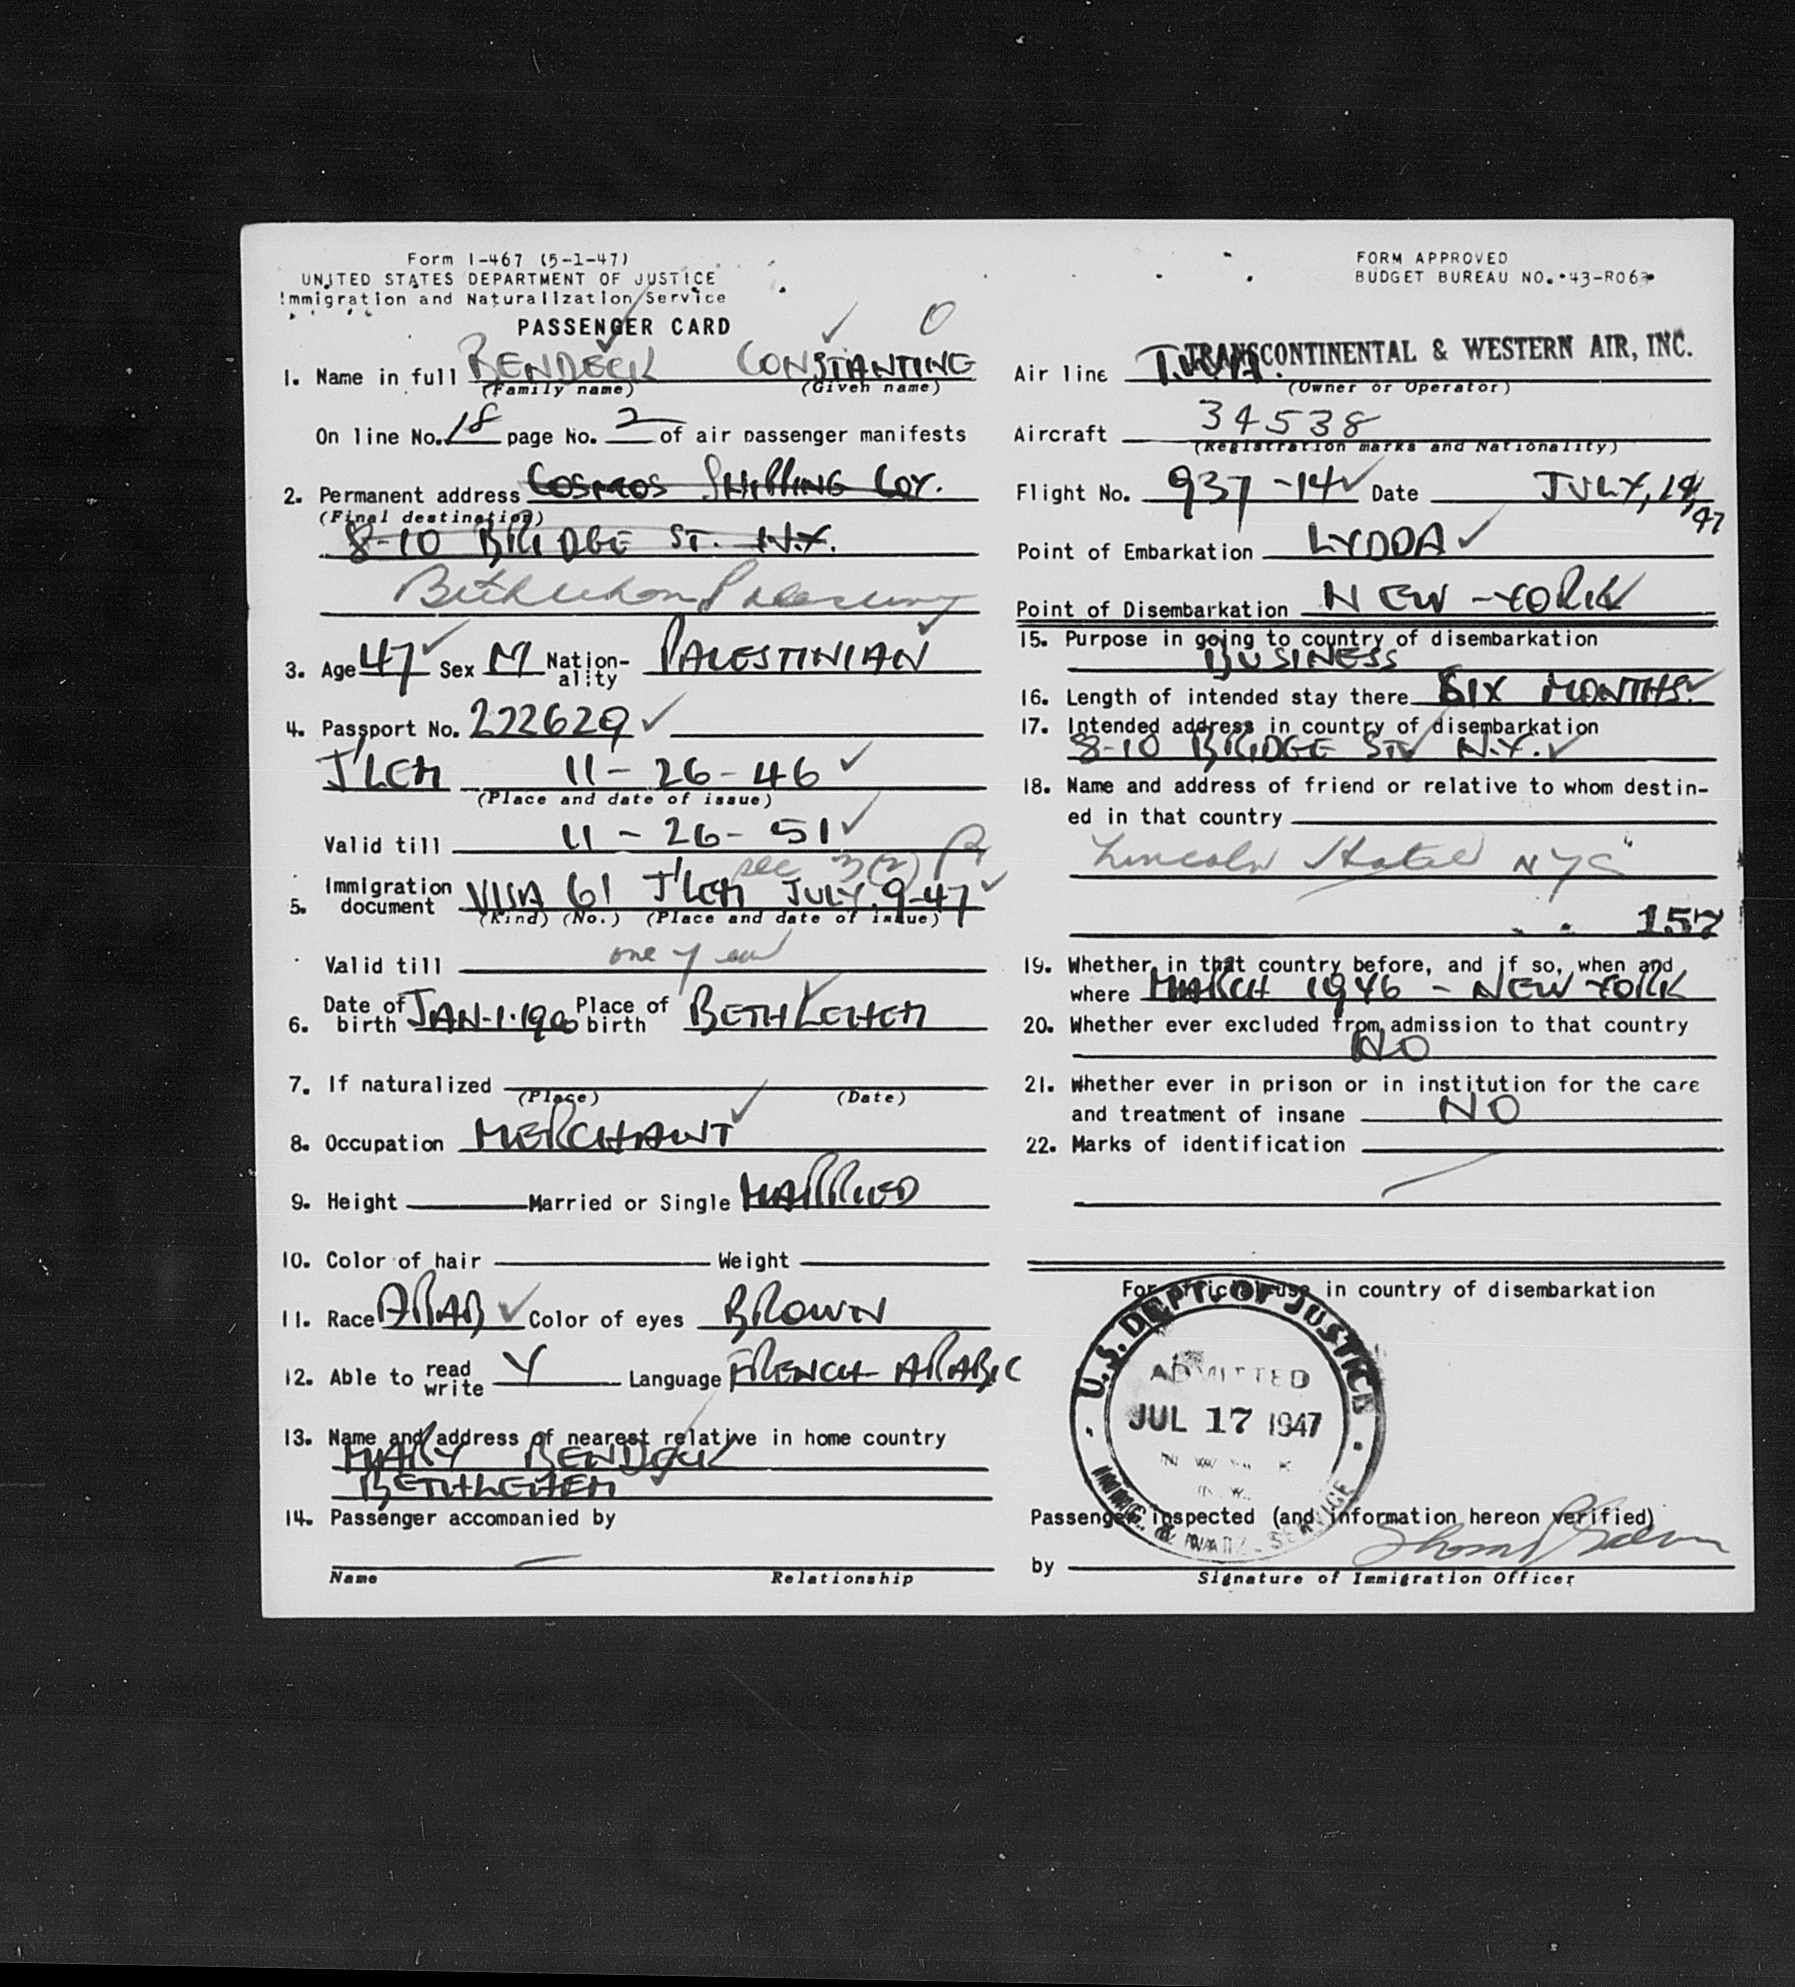 Form I-467 (5-1-47)
UNITED STATES DEPARTMENT OF JUSTICE
Immigration and Naturalization Service
PASSENGER CARD
1. Name in full BENDECK CONSTANTINE
(Family name) (Given name)
On line No. 18 page No. 2 of air passenger manifests
2. Permanent address COSMOS SHIPPING COY.
(Final destination)
8-10 BRIDGE ST. N.Y.
Bethlehem Palestine
3. Age 47 Sex M Nation-ality PALESTINIAN
4. Passport No. 222629
J'LEM 11-26-46
(Place and date of issue)
Valid till 11-26-51
sec 3(2)
5. Immigration document VISA 61 J'LEM JULY.9-47
(Kind) (No.) (Place and date of issue)
Valid till one year
6. Date of birth JAN-1-1900 Place of birth BETHLEHEM
7. If naturalized
(Place) (Date)
8. Occupation MERCHANT
9. Height Married or Single MARRIED
10. Color of hair Weight
11. Race ARAB Color of eyes BROWN
12. Able to read write Y Language FRENCH-ARABIC
13. Name and address of nearest relative in home country
MARY BENDECK
BETHLEHEM
14. Passenger accompanied by
Name Relationship
FORM APPROVED
BUDGET BUREAU NO. 43-R063
Air line T.W.A. TRANSCONTINENTAL & WESTERN AIR, INC.
(Owner or Operator)
Aircraft 34538
(Registration marks and Nationality)
Flight No. 937-14 Date JULY, 14, 47
Point of Embarkation LYDDA
Point of Disembarkation NEW-YORK
15. Purpose in going to country of disembarkation
BUSINESS
16. Length of intended stay there SIX MONTHS.
17. Intended address in country of disembarkation
8-10 BRIDGE ST. N.Y.
18. Name and address of friend or relative to whom destin-
ed in that country
Lincoln Hotel NYC
157
19. Whether in that country before, and if so, when and
where MARCH 1946 - NEW-YORK
20. Whether ever excluded from admission to that country
NO
21. Whether ever in prison or in institution for the care
and treatment of insane NO
22. Marks of identification
For official use in country of disembarkation
U.S. DEPT. OF JUSTICE
ADMITTED
JUL 17 1947
IMMIG. & NATZ. SERVICE
Passenger inspected (and information hereon verified)
by
Signature of Immigration Officer